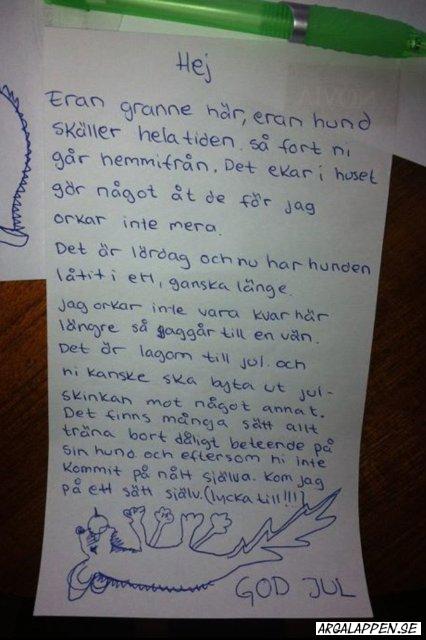 Hej
Eran granne här, eran hund
skäller hela tiden. så fort ni
går hemmifrån. Det ekar i huset
gör något åt de för jag
orkar inte mera.
Det är lördag och nu har hunden
låtit i ett, ganska länge.
jag orkar inte vara kvar här
längre så jaggår till en vän.
Det är lagom till jul. och
ni kanske ska byta ut jul-
skinkan mot något annat.
Det finns många sätt allt
träna bort dåligt beteende på
sin hund och eftersom ni inte
kommit på nått själwa. Kom jag
på ett sätt själv. (lycka till!!!)
GOD JUL
ARGALAPPEN.SE